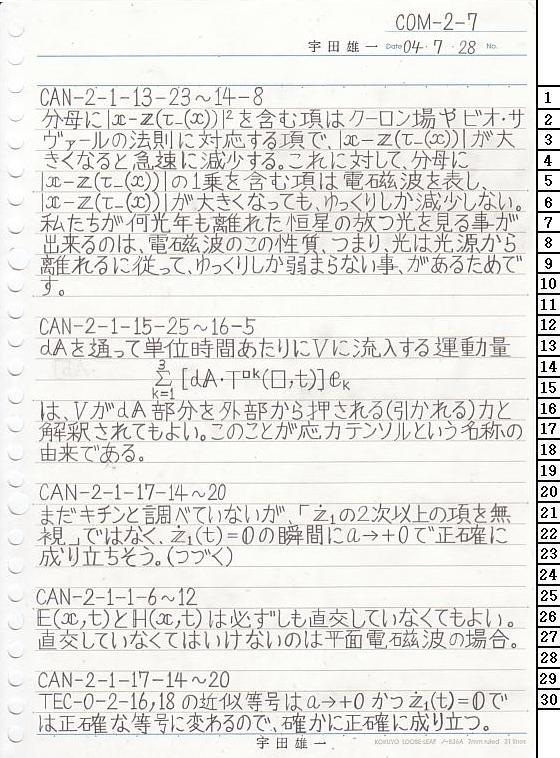 COM-2-7
宇田雄一 Date 04・7・28 No.
CAN-2-1-13-23～14-8
分母に|x-z(τ₋(x))|²を含む項はクーロン場やビオ・サ
ヴァールの法則に対応する項で、|x-z(τ₋(x))|が大
きくなると急速に減少する。これに対して、分母に
|x-z(τ₋(x))|の1乗を含む項は電磁波を表し、
|x-z(τ₋(x))|が大きくなっても、ゆっくりしか減少しない。
私たちが何光年も離れた恒星の放つ光を見る事が
出来るのは、電磁波のこの性質、つまり、光は光源から
離れるに従って、ゆっくりしか弱まらない事、があるためで
す。
CAN-2-1-15-25～16-5
dAを通って単位時間あたりにVに流入する運動量
3∑k=1 [dA・T□k(□,t)]eₖ
は、VがdA部分を外部から押される(引かれる)力と
解釈されてもよい。このことが応力テンソルという名称の
由来である。
CAN-2-1-17-14～20
まだキチンと調べていないが、「ż₁の2次以上の項を無
視」ではなく、ż₁(t)=0の瞬間にa→+0で正確に
成り立ちそう。(つづく)
CAN-2-1-1-6～12
E(x,t)とH(x,t)は必ずしも直交していなくてもよい。
直交していなくてはいけないのは平面電磁波の場合。
CAN-2-1-17-14～20
TEC-0-2-16,18の近似等号はa→+0かつż₁(t)=0で
は正確な等号に変わるので、確かに正確に成り立つ。
宇田雄一 KOKUYO LOOSE-LEAF ノ-836A 7mm ruled 31 lines
1
2
3
4
5
6
7
8
9
10
11
12
13
14
15
16
17
18
19
20
21
22
23
24
25
26
27
28
29
30